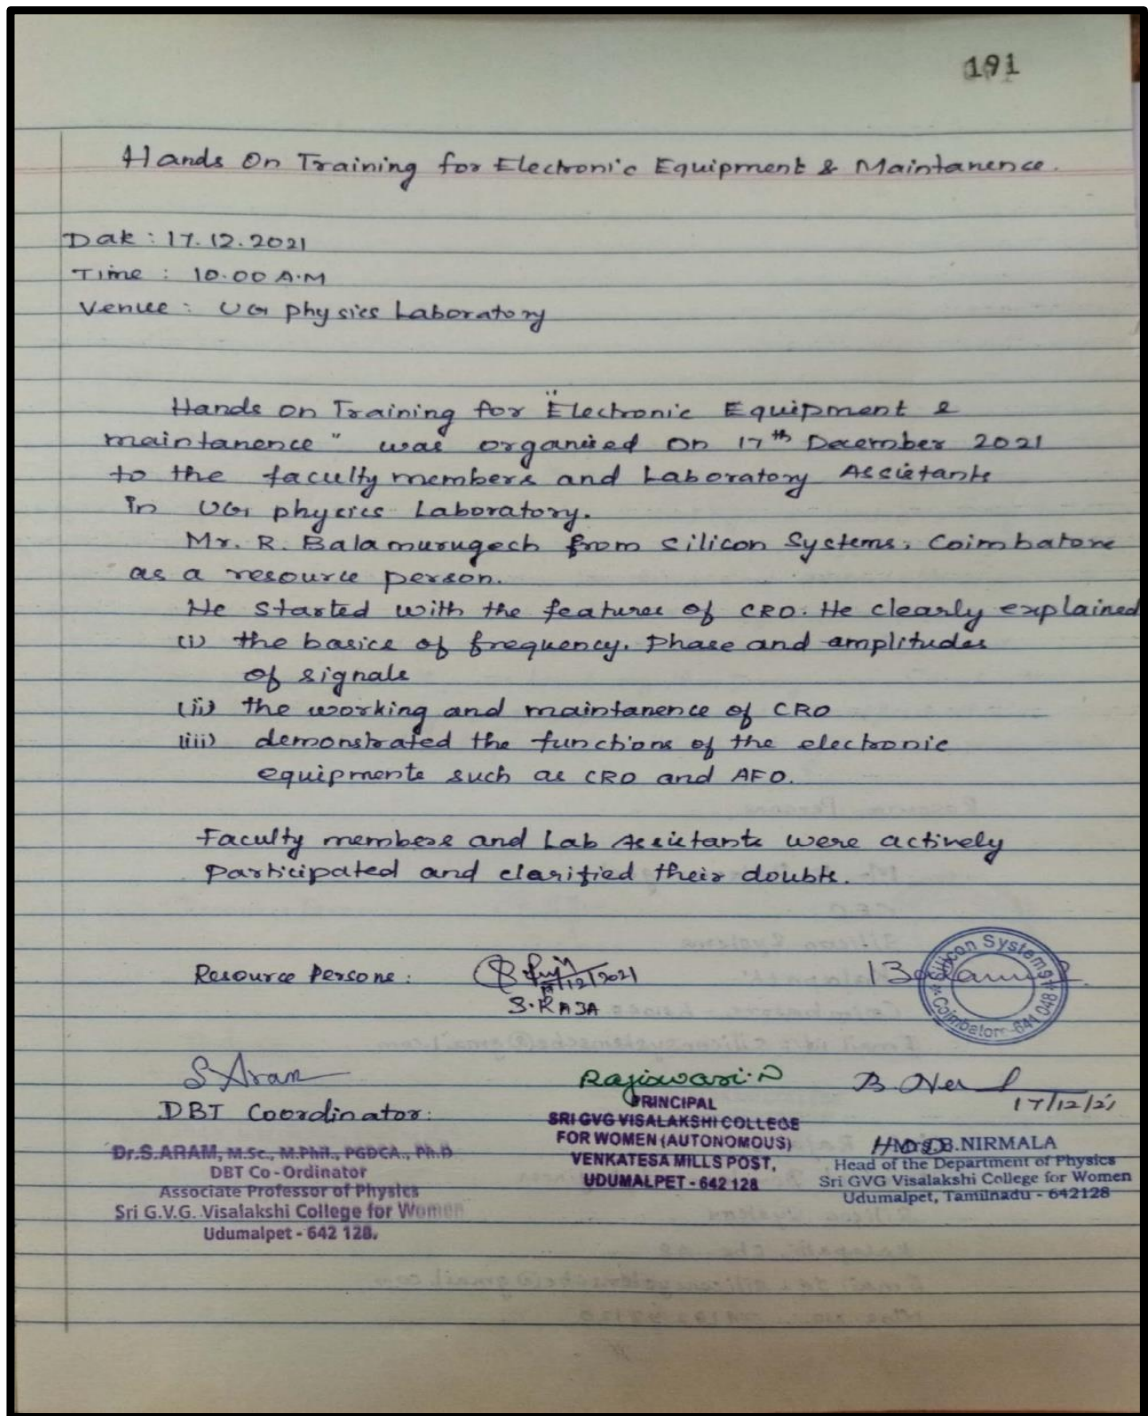 191
Hands On Training for Electronic Equipment & Maintanence.
Date : 17.12.2021
Time : 10.00 A.M
Venue : UG physics Laboratory
Hands on Training for "Electronic Equipment &
maintanence" was organised on 17th December 2021
to the faculty members and Laboratory Assistants
in UG physics Laboratory.
Mr. R. Balamurugesh from Silicon Systems, Coimbatore
as a resource person.
He started with the features of CRO. He clearly explained
(i) the basics of frequency, Phase and amplitudes
of signals
(ii) the working and maintanence of CRO
(iii) demonstrated the functions of the electronic
equipments such as CRO and AFO.
Faculty members and Lab Assistants were actively
participated and clarified their doubts.
Resource Persons :
17/12/2021
S. RAJA
Silicon Systems
Coimbatore-641 048
S Aram
Rajiswari.N
DBT Coordinator:
17/12/21
Dr.S.ARAM, M.Sc., M.Phil., PGDCA., Ph.D
DBT Co-Ordinator
Associate Professor of Physics
Sri G.V.G. Visalakshi College for Women
Udumalpet - 642 128.
PRINCIPAL
SRI GVG VISALAKSHI COLLEGE
FOR WOMEN (AUTONOMOUS)
VENKATESA MILLS POST,
UDUMALPET - 642 128
B.NIRMALA
Head of the Department of Physics
Sri GVG Visalakshi College for Women
Udumalpet, Tamilnadu - 642128